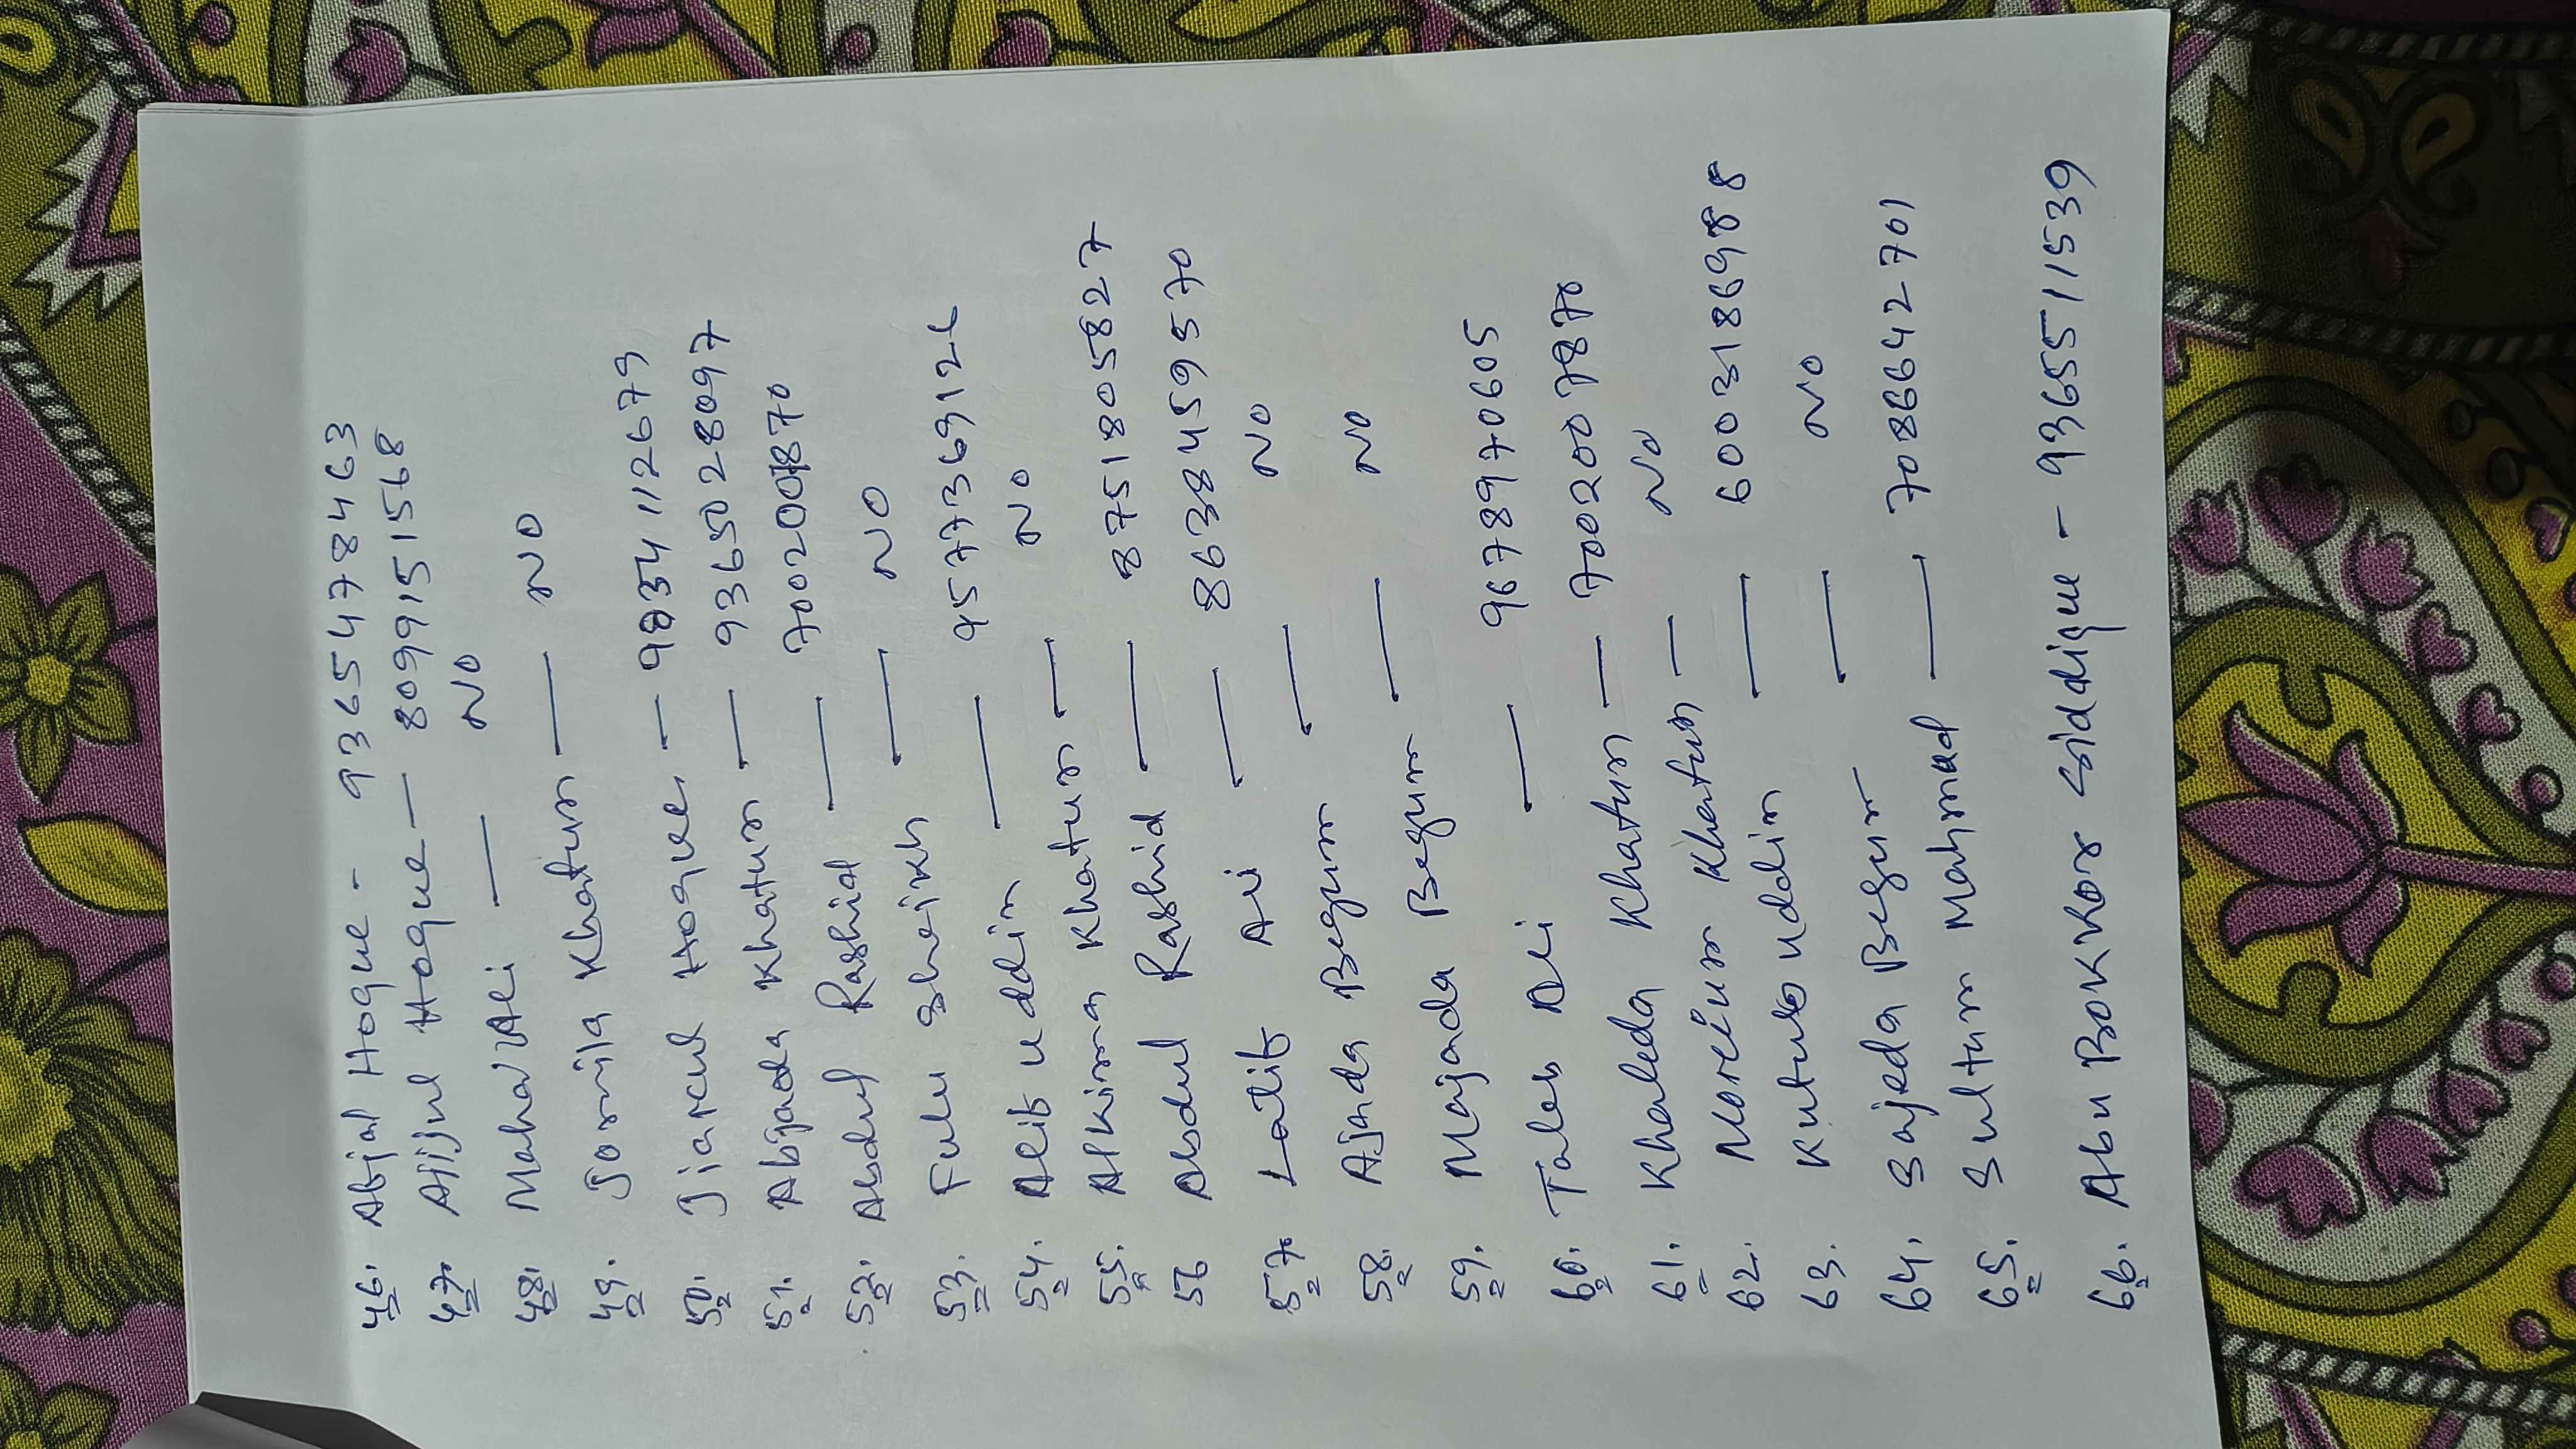 46. Abjal Hoque - 9365478463
47. Aijul Hoque — 8099151568
48. Mahar Ali — NO
49. Jomila Khatun — NO
50. Jiarul Hoque — 9854112679
51. Abjada Khatun — 9365028097
52. Abdul Rashid — 7002007870
53. Fulu Sheikh — NO
54. Alib uddin —
55. Alkima Khatun — NO
56 Abdul Rashid — 8751805827
57. Latif Ali — 8638459570
58. Ajuda Begum — NO
59. Majada Begum — NO
60. Taleb Ali — 9678970605
61. Khaleda Khatun — 7002007870
62. Moreium Khatun — NO
63. Kutub uddin — 6003186988
64. Sajeda Begum — NO
65. Sultan Mahmud — 7086642701
66. Abu Bokkor Siddique - 9365511539